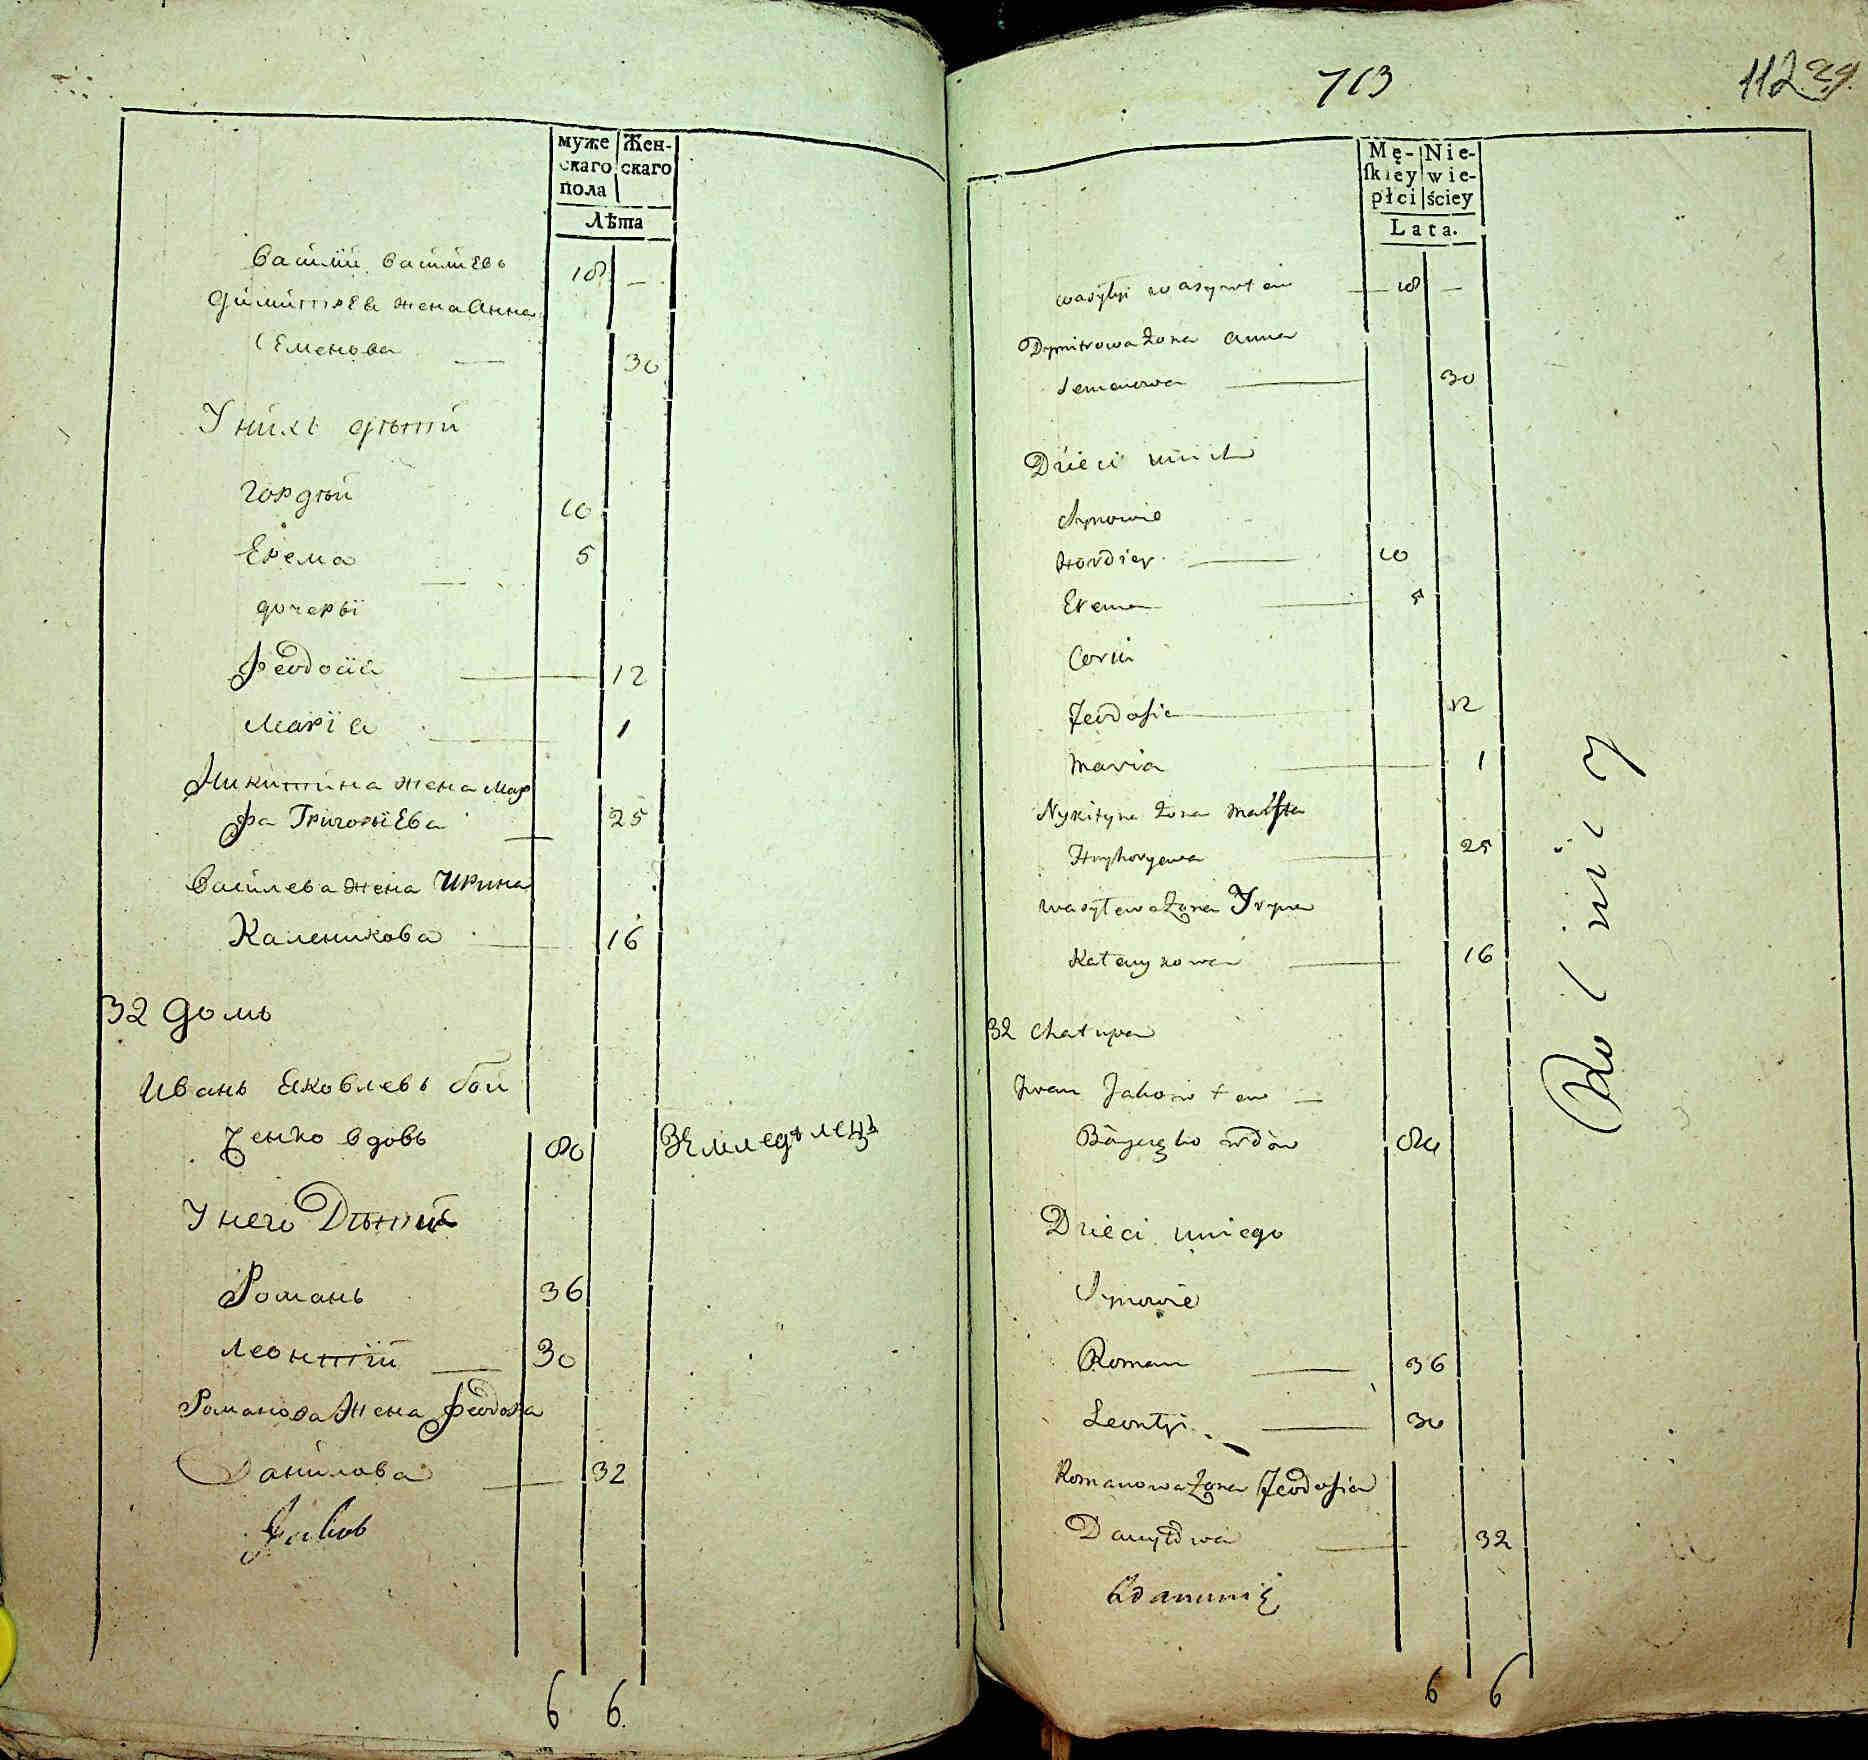 муже Жен-
скаго скаго
пола
Лѣта
василій васильевъ 18 —
димитрева жена Анна
Семенова — 30
У нихъ дѣти
Гордѣй 10
Ерема — 5
дочеры
Феодосія — 12
Марія — 1
Никитина жена Мар
фа Григорьева — 25
Василева жена Ирина
Каленикова — 16
32 домъ
Иванъ Яковлевъ бой
ченко вдовъ 80 Земледѣлецъ
У него Дѣти
Романъ 36
Леонтій — 30
Романова Жена Феодора
Данилова — 32
713
112 29.
Mę- Nie-
ſkiey wie-
płci ściey
Lata.
wasylyi wasylew — 18 —
Dymitrowa żona anna
Semenowa — 30
Dzieci u nich
Synowie
Hordiey — 10
Erema — 5
Corki
Feodosia — 12
Maria — 1
Nykityna żona Marfta
Hryhoryewa — 25
wasylewa żona Iryna
Kalenykowa — 16
32 Chałupa
Iwan Jakowlew —
Bayczęko wdow 80
Dzieci u niego
Synowie
Roman — 36
Leontyi — 30
Romanowa żona Feodosia
Danyłowa — 32
Rolnicy
6 6.
6 6